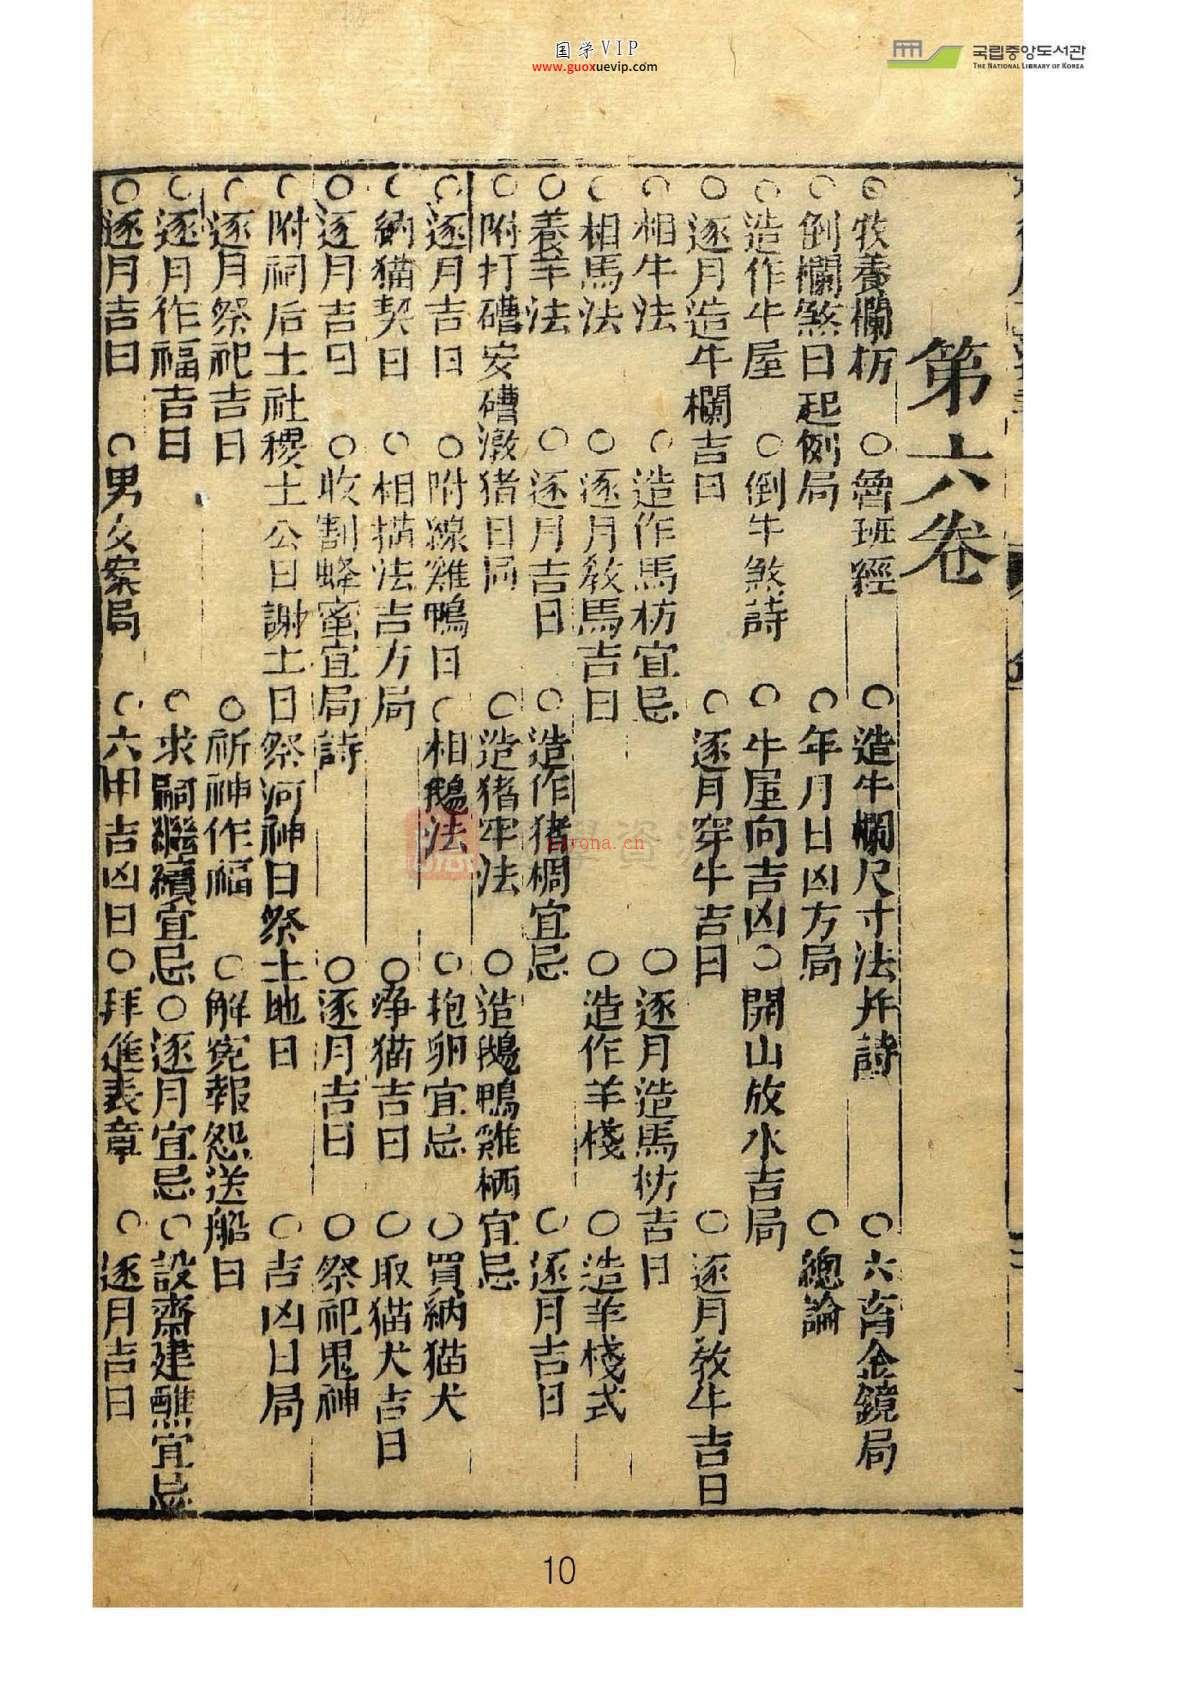 国学VIP
www.guoxuevip.com
국립중앙도서관
THE NATIONAL LIBRARY OF KOREA
第六卷
○牧養欄枋 ○魯班經 ○造牛欄尺寸法并詩 ○六畜金鏡局
○倒欄煞日起例局 ○年月日凶方局 ○總論
○造作牛屋 ○倒牛煞詩 ○牛屋向吉凶 ○開山放水吉局
○逐月造牛欄吉日 ○逐月穿牛吉日 ○逐月教牛吉日
○相牛法 ○造作馬枋宜忌 ○逐月造馬枋吉日
○相馬法 ○逐月教馬吉日 ○造作羊棧 ○造羊棧式
○養羊法 ○逐月吉日 ○造作猪椆宜忌 ○逐月吉日
○附打磄安磄激猪日局 ○造猪牢法 ○造鵝鴨雞栖宜忌
○逐月吉日 ○附線雞鴨日 ○相鵝法 ○抱卵宜忌 ○買納猫犬
○納猫契日 ○相猫法吉方局 ○淨猫吉日 ○取猫犬吉日
○逐月吉日 ○收割蜂蜜宜局詩 ○逐月吉日 ○祭祀鬼神
○附祠后土社稷土公日謝土日祭河神日祭土地日 ○吉凶日局
○逐月祭祀吉日 ○祈神作福 ○解冤報怨送船日
○逐月作福吉日 ○求嗣繼續宜忌 ○逐月宜忌 ○設齋建醮宜忌
○逐月吉日 ○男女案局 ○六甲吉凶日 ○拜進表章 ○逐月吉日
10